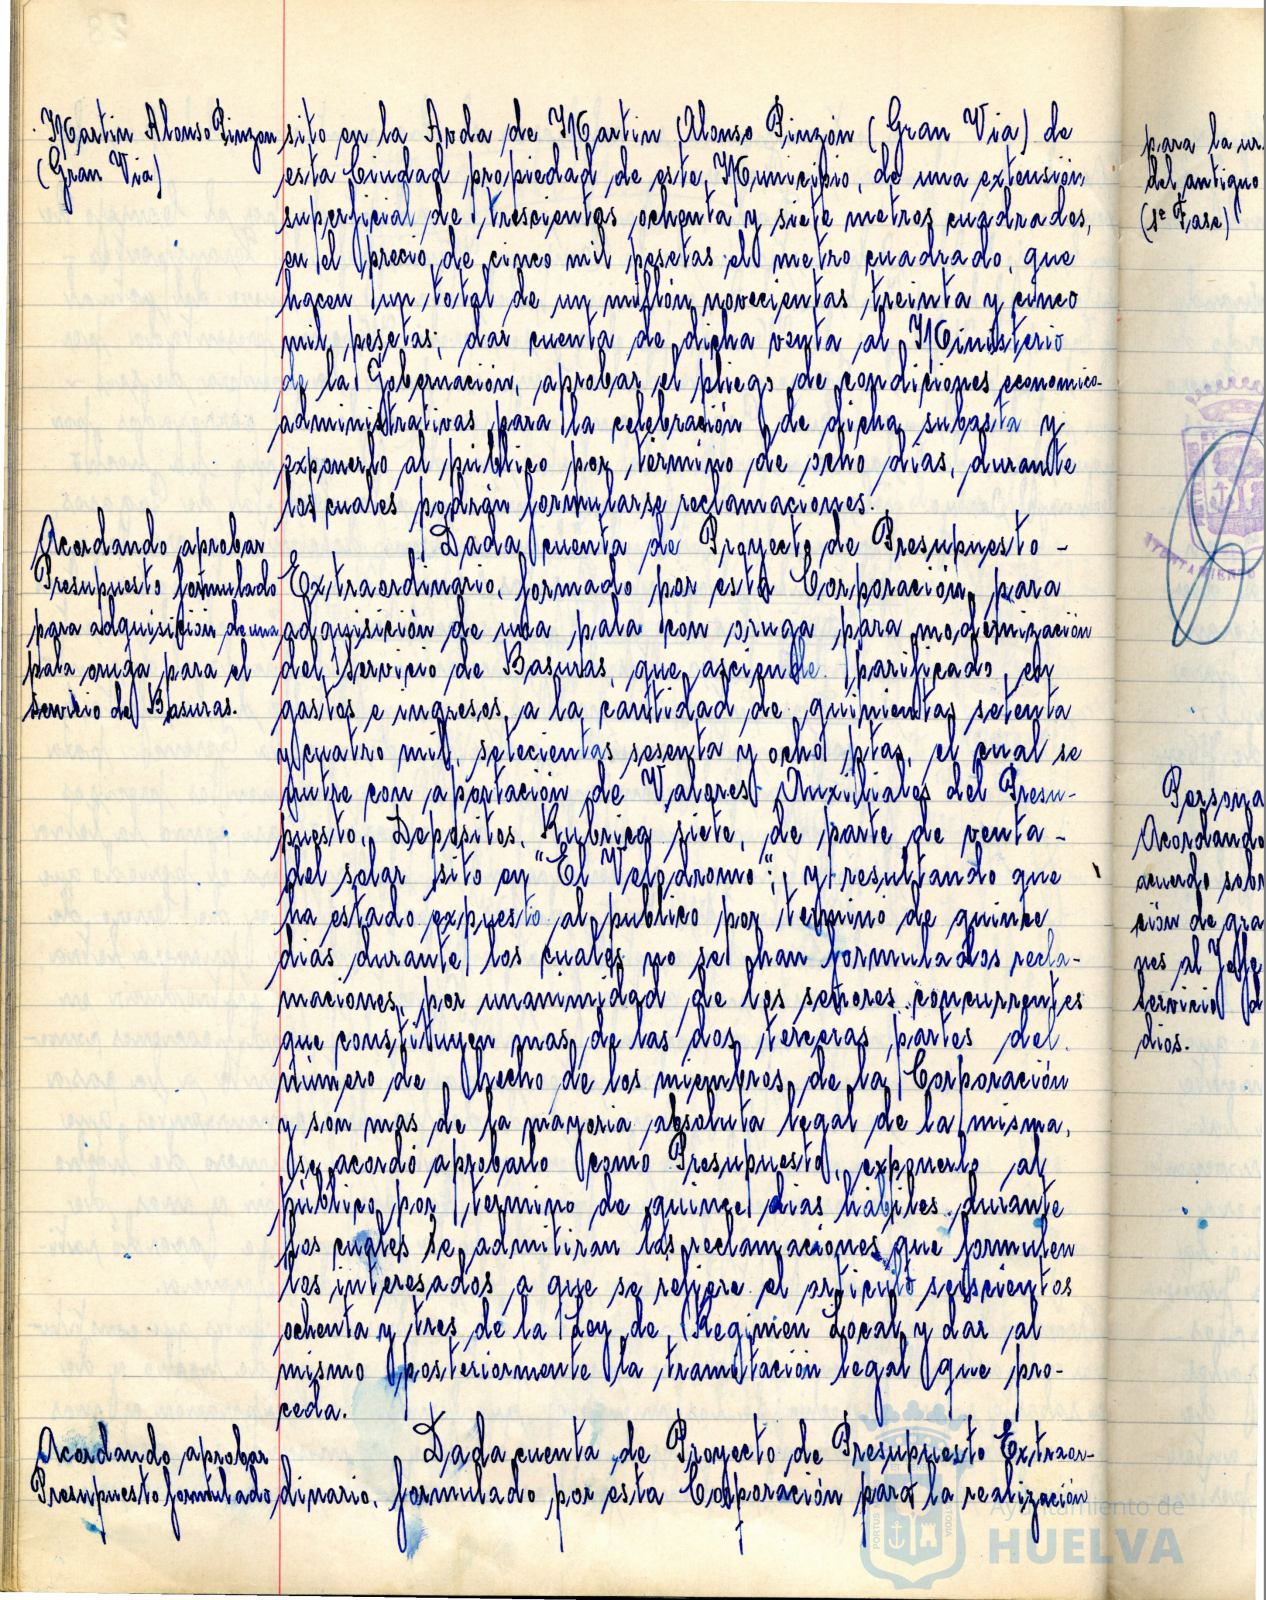 Martin Alonso Pinzon
(Gran Via)
sito en la Avda de Martin Alonso Pinzón (Gran Via) de
esta Ciudad propiedad de este Municipio, de una extensión
superficial de trescientos ochenta y siete metros cuadrados,
en el precio de cinco mil pesetas el metro cuadrado, que
hacen un total de un millón novecientas treinta y cinco
mil pesetas; dar cuenta de dicha venta al Ministerio
de la Gobernación, aprobar el pliego de condiciones economico-
administrativas para la celebración de dicha subasta y
exponerlo al público por término de ocho dias, durante
los cuales podrán formularse reclamaciones.
Acordando aprobar
Presupuesto formulado
para adquisición de una
pala oruga para el
Servicio de Basuras.
Dada cuenta de Proyecto de Presupuesto -
Extraordinario, formado por esta Corporación, para
adquisición de una pala con oruga para modernización
del Servicio de Basuras, que asciende parificado, en
gastos e ingresos, a la cantidad de quinientas setenta
y cuatro mil, setecientas sesenta y ocho ptas, el cual se
nutre con aportación de Valores Auxiliales del Presu-
puesto. Depósitos. Rubrica siete, de parte de venta -
del solar sito en "El Velodromo"; y resultando que
ha estado expuesto al publico por termino de quince
dias durante los cuales no se han formulados recla-
maciones, por unanimidad de los señores concurrentes
que constituyen mas de las dos terceras partes del
número de hecho de los miembros de la Corporación
y son mas de la mayoria absoluta legal de la misma,
se acordó aprobarlo como Presupuesto, exponerlo al
público por termino de quince dias hábiles durante
los cuales se admitiran las reclamaciones que formulen
los interesados a que se refiere el articulo seiscientos
ochenta y tres de la Ley de Regimen Local y dar al
mismo posteriormente la tramitación legal que pro-
ceda.
Acordando aprobar
Presupuesto formulado
Dada cuenta de Proyecto de Presupuesto Extraor-
dinario, formulado por esta Corporación para la realización
para la ur
del antiguo
(1ª Fase)
Persona
Acordando
acuerdo sobr
ción de gra
nes al Jefe
Servicio d
dios.
Ayuntamiento de
HUELVA